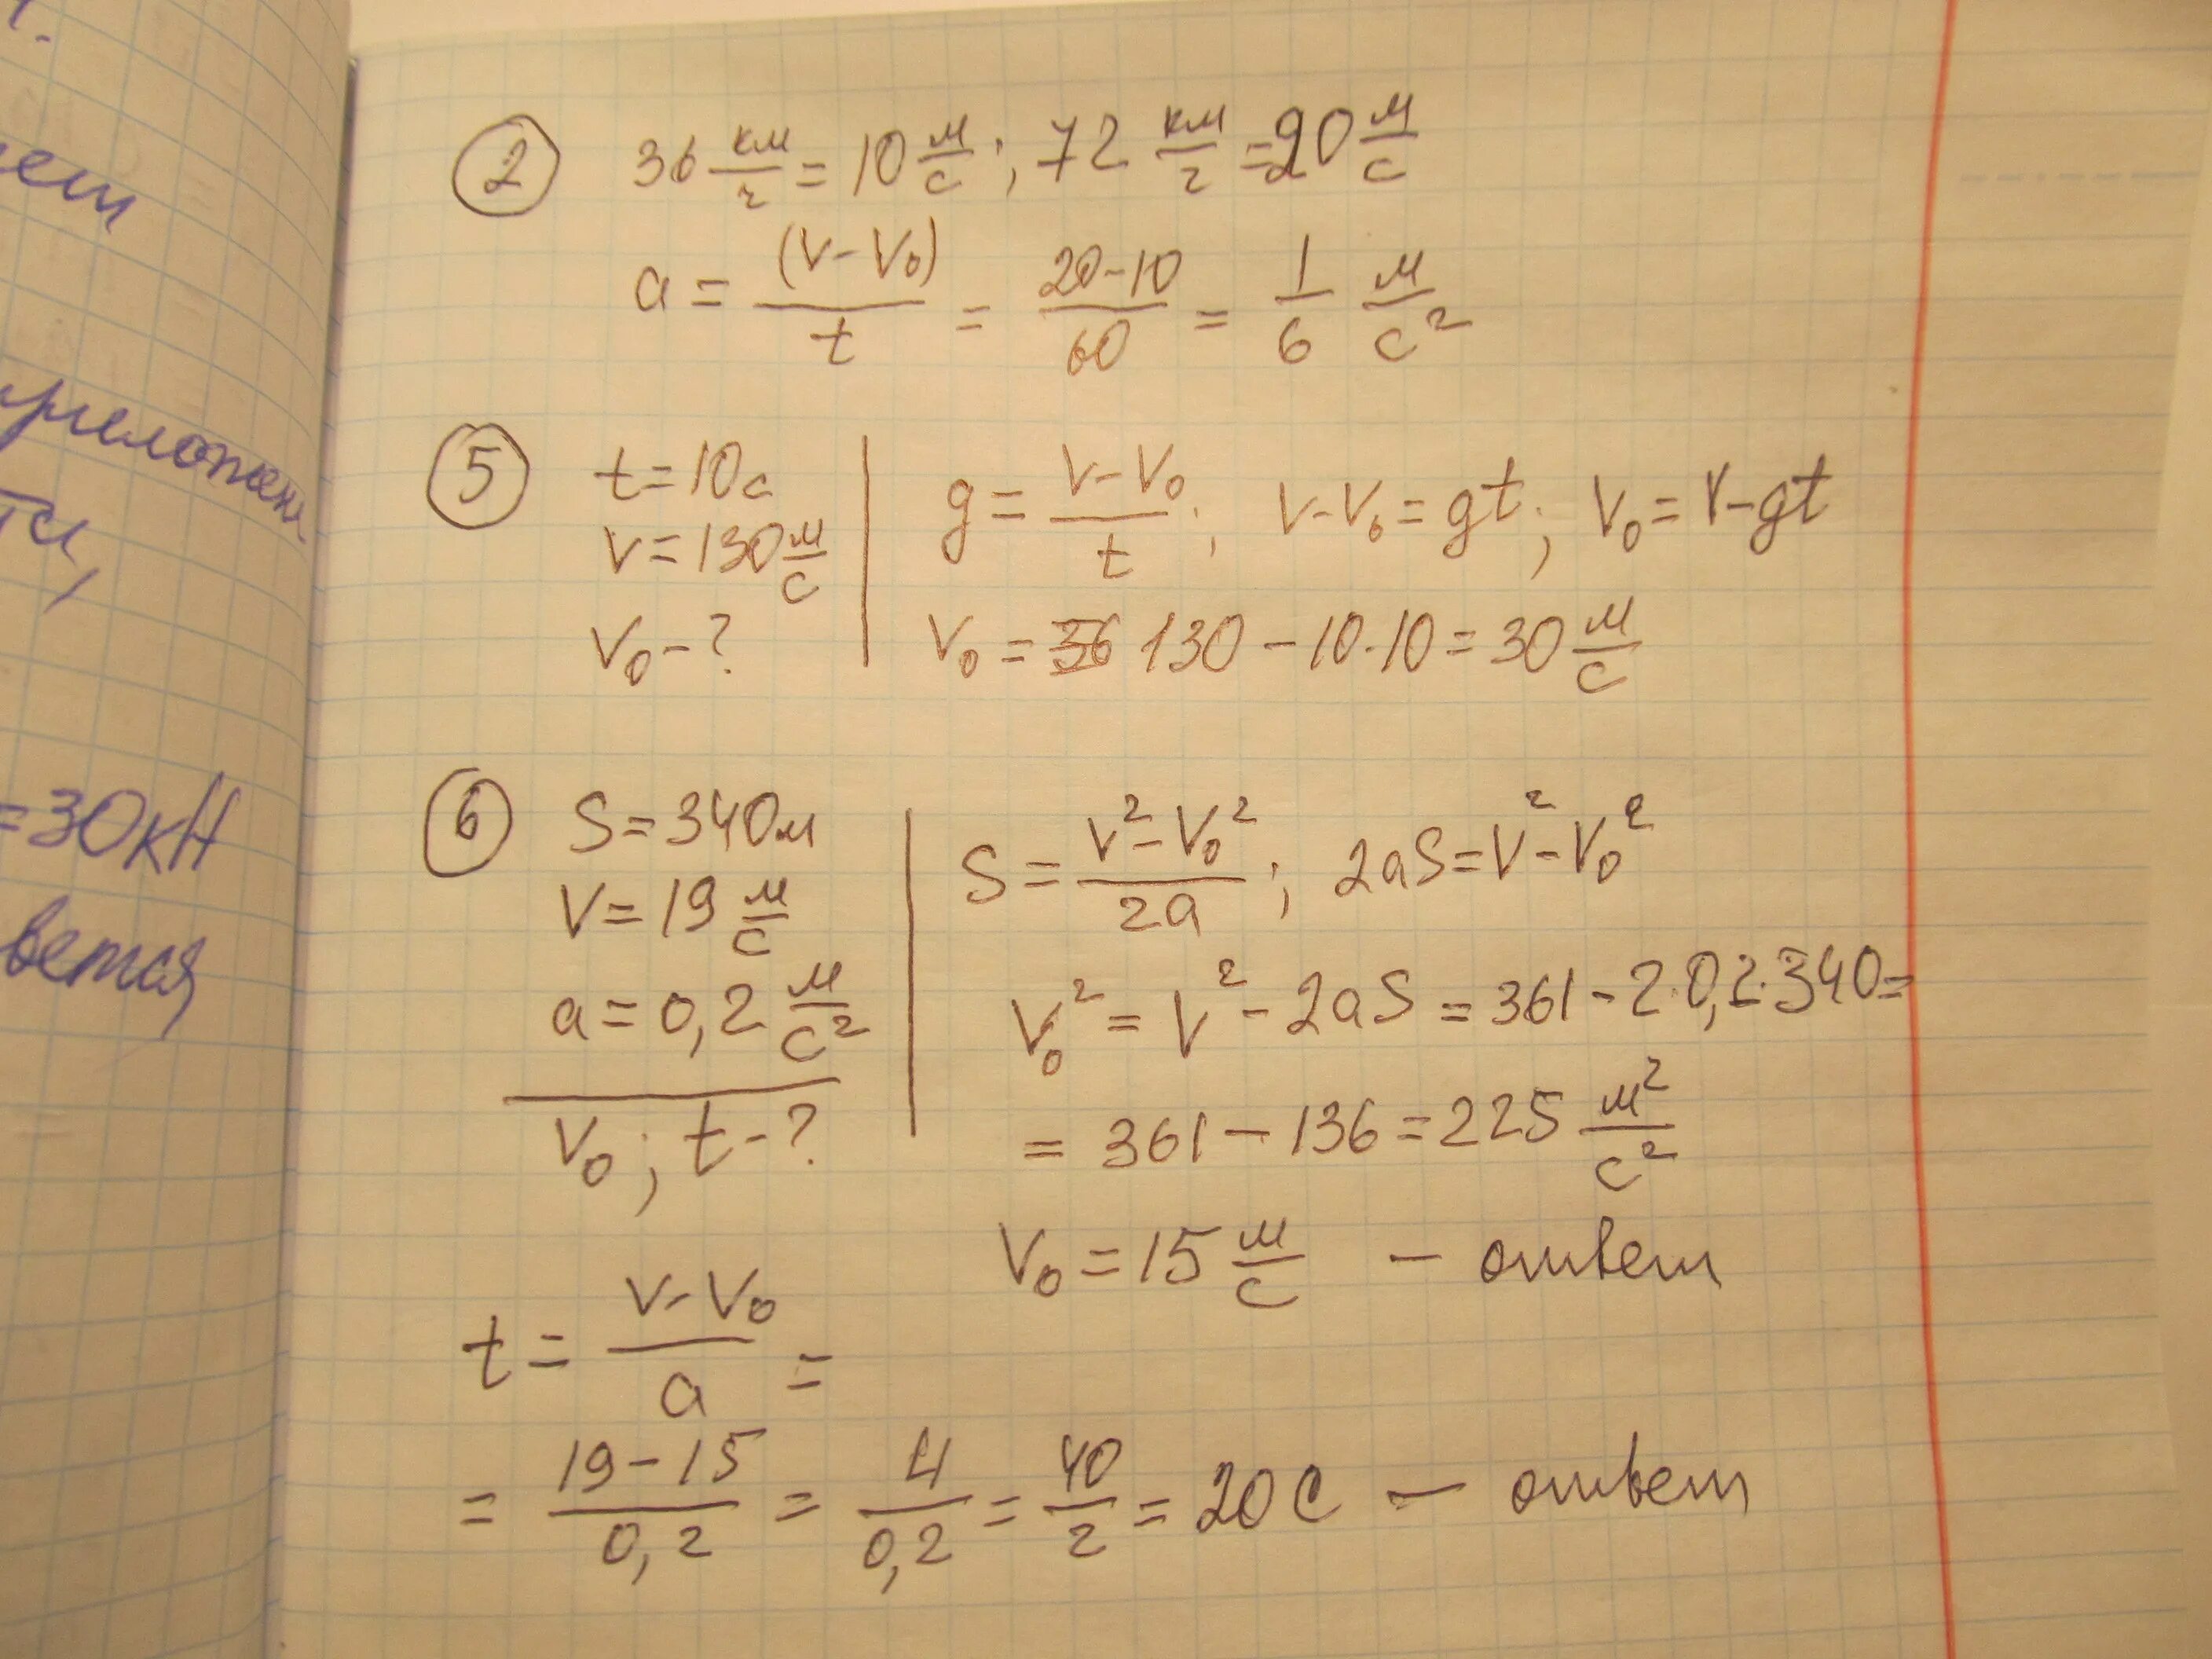 ет
приложен
= 30 кН
вется
② 36 км/ч = 10 м/с ; 72 км/ч = 20 м/с
a = (V - V₀)/t = 20-10/60 = 1/6 м/с²
⑤ t = 10 с
V = 130 м/с
V₀ - ?
g = V - V₀/t ; V - V₀ = gt ; V₀ = V - gt
V₀ = 130 - 10 · 10 = 30 м/с
⑥ S = 340 м
V = 19 м/с
a = 0,2 м/с²
V₀ ; t - ?
S = V² - V₀²/2a ; 2aS = V² - V₀²
V₀² = V² - 2aS = 361 - 2 · 0,2 · 340 =
= 361 - 136 = 225 м²/с²
V₀ = 15 м/с - ответ
t = V - V₀/a =
= 19 - 15/0,2 = 4/0,2 = 40/2 = 20 с - ответ